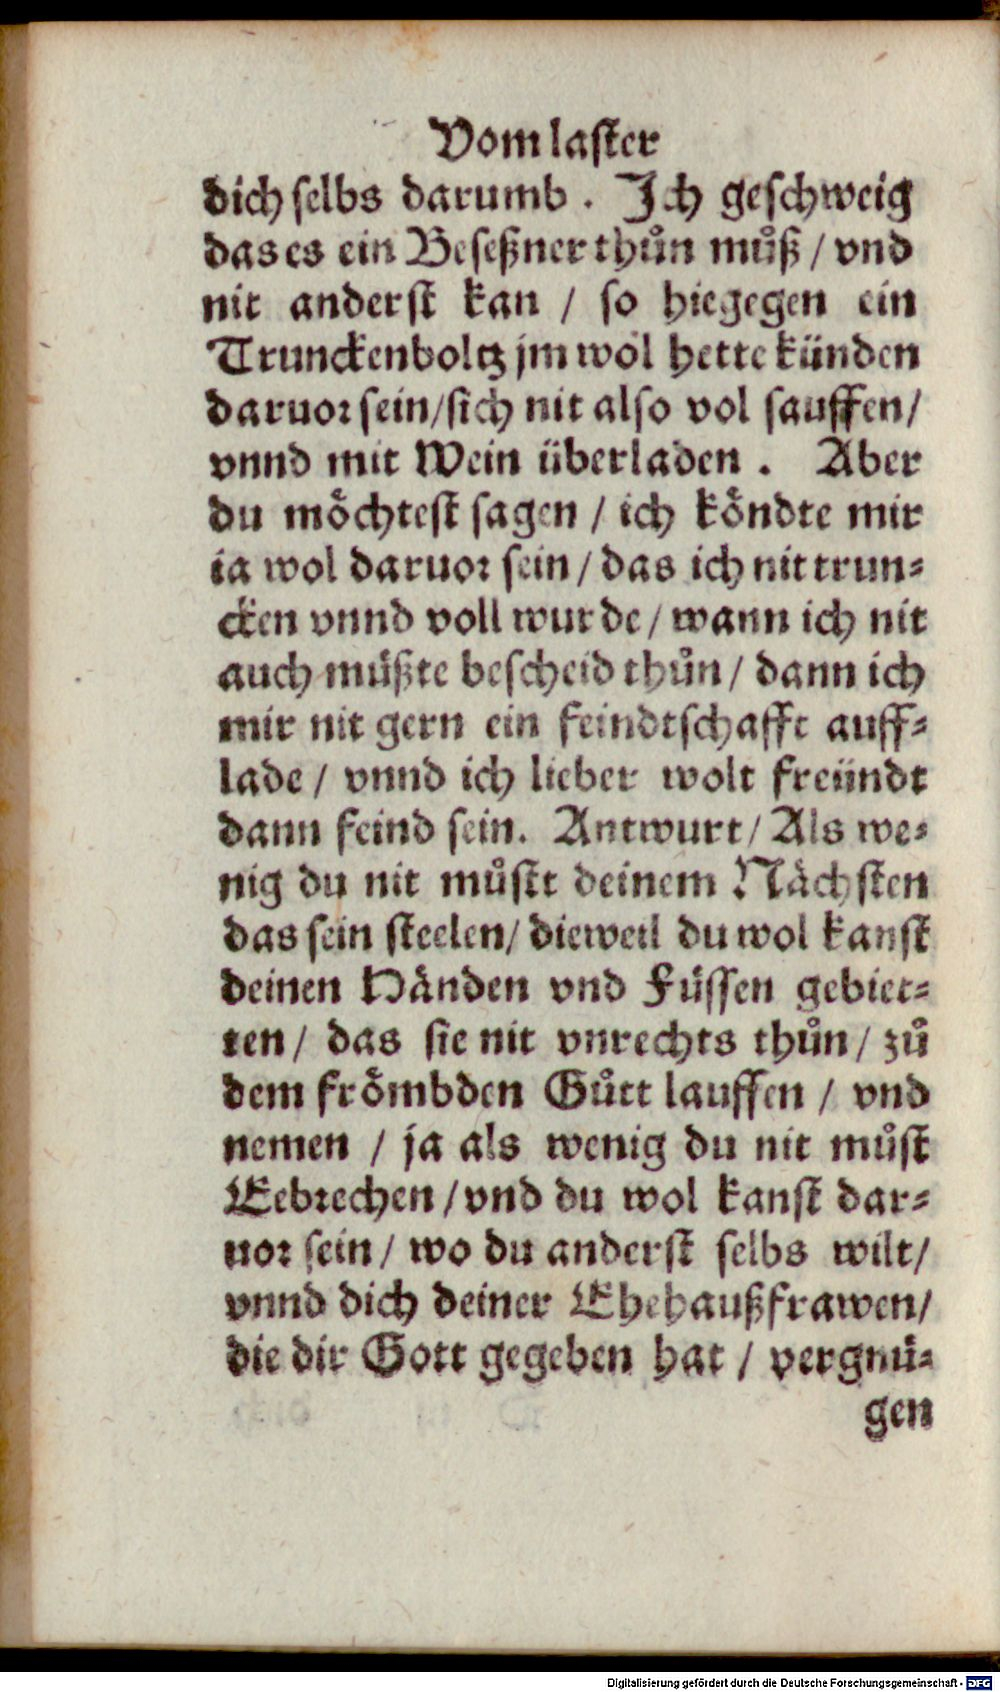 Vom laster
dich selbs darumb. Ich geschweig
das es ein Beseßner thůn můß / vnd
nit anderst kan / so hiegegen ein
Trunckenboltz jm wol hette künden
daruor sein / sich nit also vol sauffen /
vnnd mit Wein überladen. Aber
du moͤchtest sagen / ich koͤndte mir
ia wol daruor sein / das ich nit trun-
cken vnnd voll wurde / wann ich nit
auch muͤßte bescheid thůn / dann ich
mir nit gern ein feindtschafft auff-
lade / vnnd ich lieber wolt freündt
dann feind sein. Antwurt / Als we-
nig du nit můstt deinem Naͤchsten
das sein steelen / dieweil du wol kanst
deinen Haͤnden vnd Fuͤssen gebiet-
ten / das sie nit vnrechts thůn / zů
dem froͤmbden Gůtt lauffen / vnd
nemen / ja als wenig du nit můst
Eebrechen / vnd du wol kanst dar-
uor sein / wo du anderst selbs wilt /
vnnd dich deiner Ehehaußfrawen /
die dir Gott gegeben hat / vergnuͤ-
gen
Digitalisierung gefördert durch die Deutsche Forschungsgemeinschaft - DFG